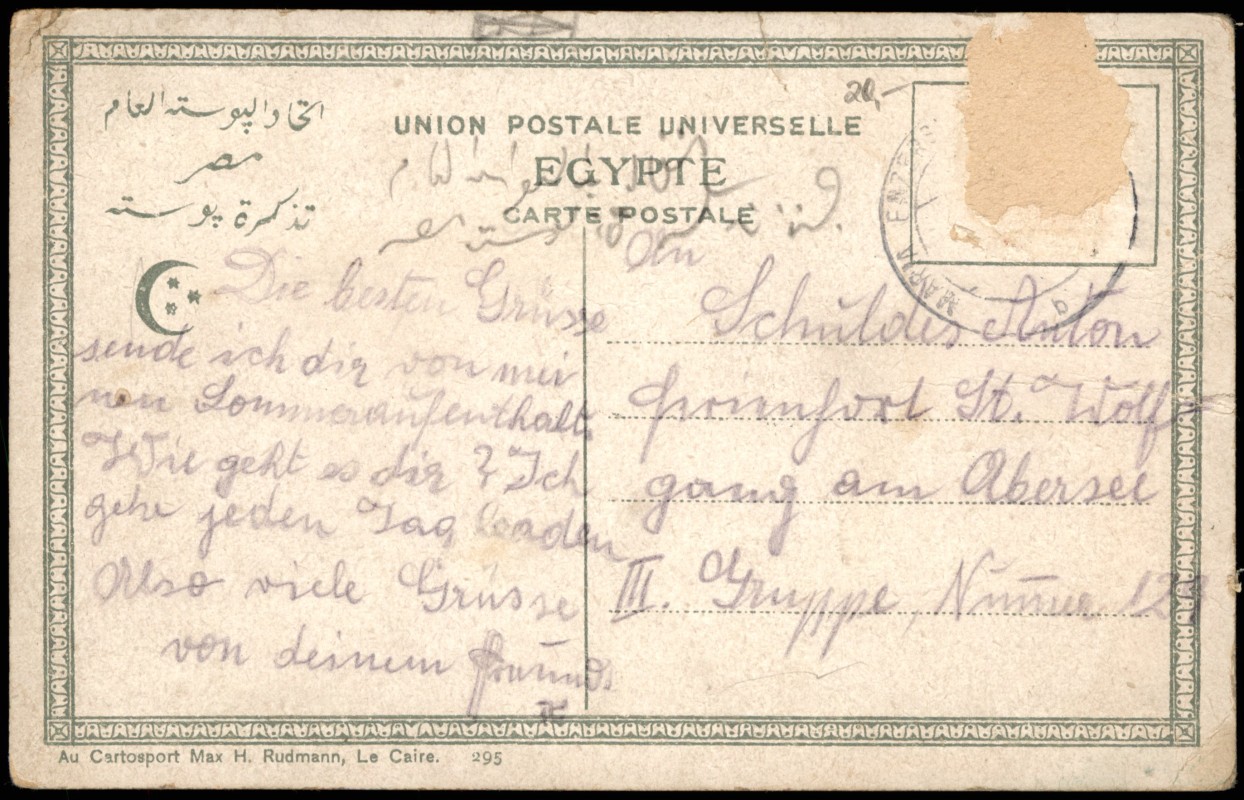 اتحاد البوسته العام
مصر
تذكرة بوسته
UNION POSTALE UNIVERSELLE
EGYPTE
CARTE POSTALE
20,-
MARIA ENZERS
b
Die besten Grüsse
sende ich dir von mei
nen Sommeraufenthalt.
Wie geht es dir? Ich
gehe jeden Tag baaden
Also viele Grüsse
von deinem Freund
An
Schuldes Anton
St. Wolf
gang am Abersee
III. Gruppe, Nummer
Au Cartosport Max H. Rudmann, Le Caire. 295